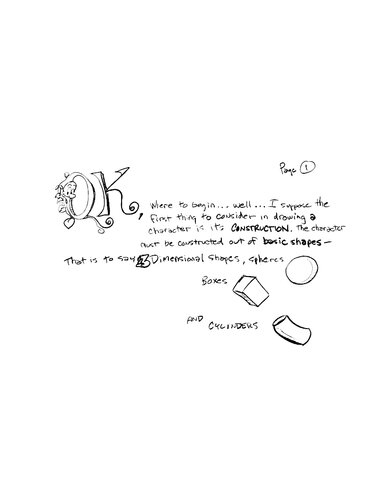 Page 1
OK, Where to begin... well... I suppose the
first thing to consider in drawing a
character is it's CONSTRUCTION. The character
must be constructed out of basic shapes —
That is to say 3 Dimensional shapes, spheres
BOXES
AND CYLINDERS